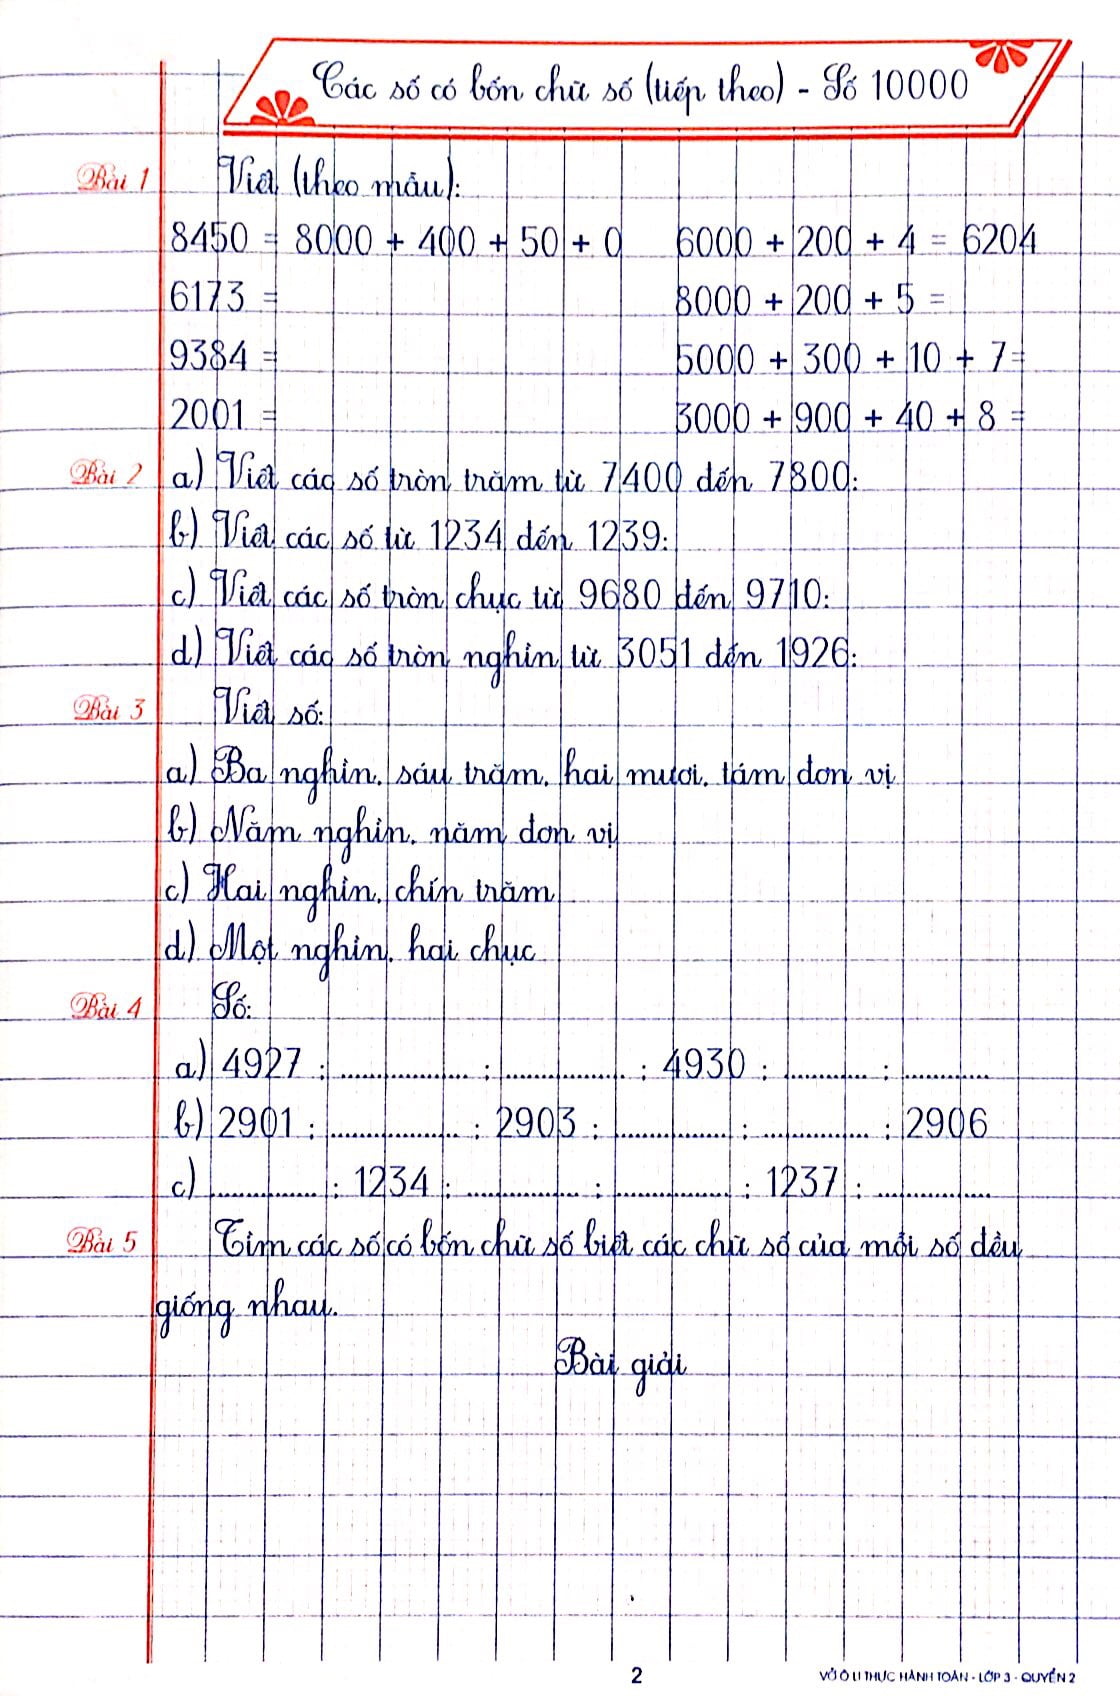 Các số có bốn chữ số (tiếp theo) - Số 10000
Bài 1 Viết (theo mẫu):
8450 = 8000 + 400 + 50 + 0 6000 + 200 + 4 = 6204
6173 = 8000 + 200 + 5 =
9384 = 5000 + 300 + 10 + 7=
2001 = 3000 + 900 + 40 + 8 =
Bài 2 a) Viết các số tròn trăm từ 7400 đến 7800:
b) Viết các số từ 1234 đến 1239:
c) Viết các số tròn chục từ 9680 đến 9710:
d) Viết các số tròn nghìn từ 3051 đến 1926:
Bài 3 Viết số:
a) Ba nghìn, sáu trăm, hai mươi, tám đơn vị
b) Năm nghìn, năm đơn vị
c) Hai nghìn, chín trăm
d) Một nghìn, hai chục
Bài 4 Số:
a) 4927 ; .................. ; .................. ; 4930 ; ............ ; ............
b) 2901 ; .................. ; 2903 ; ................ ; ............... ; 2906
c) ............... ; 1234 ; ................ ; ................ ; 1237 ; ................
Bài 5 Tìm các số có bốn chữ số biết các chữ số của mỗi số đều
giống nhau.
Bài giải
2 VỞ Ô LI THỰC HÀNH TOÁN - LỚP 3 - QUYỂN 2